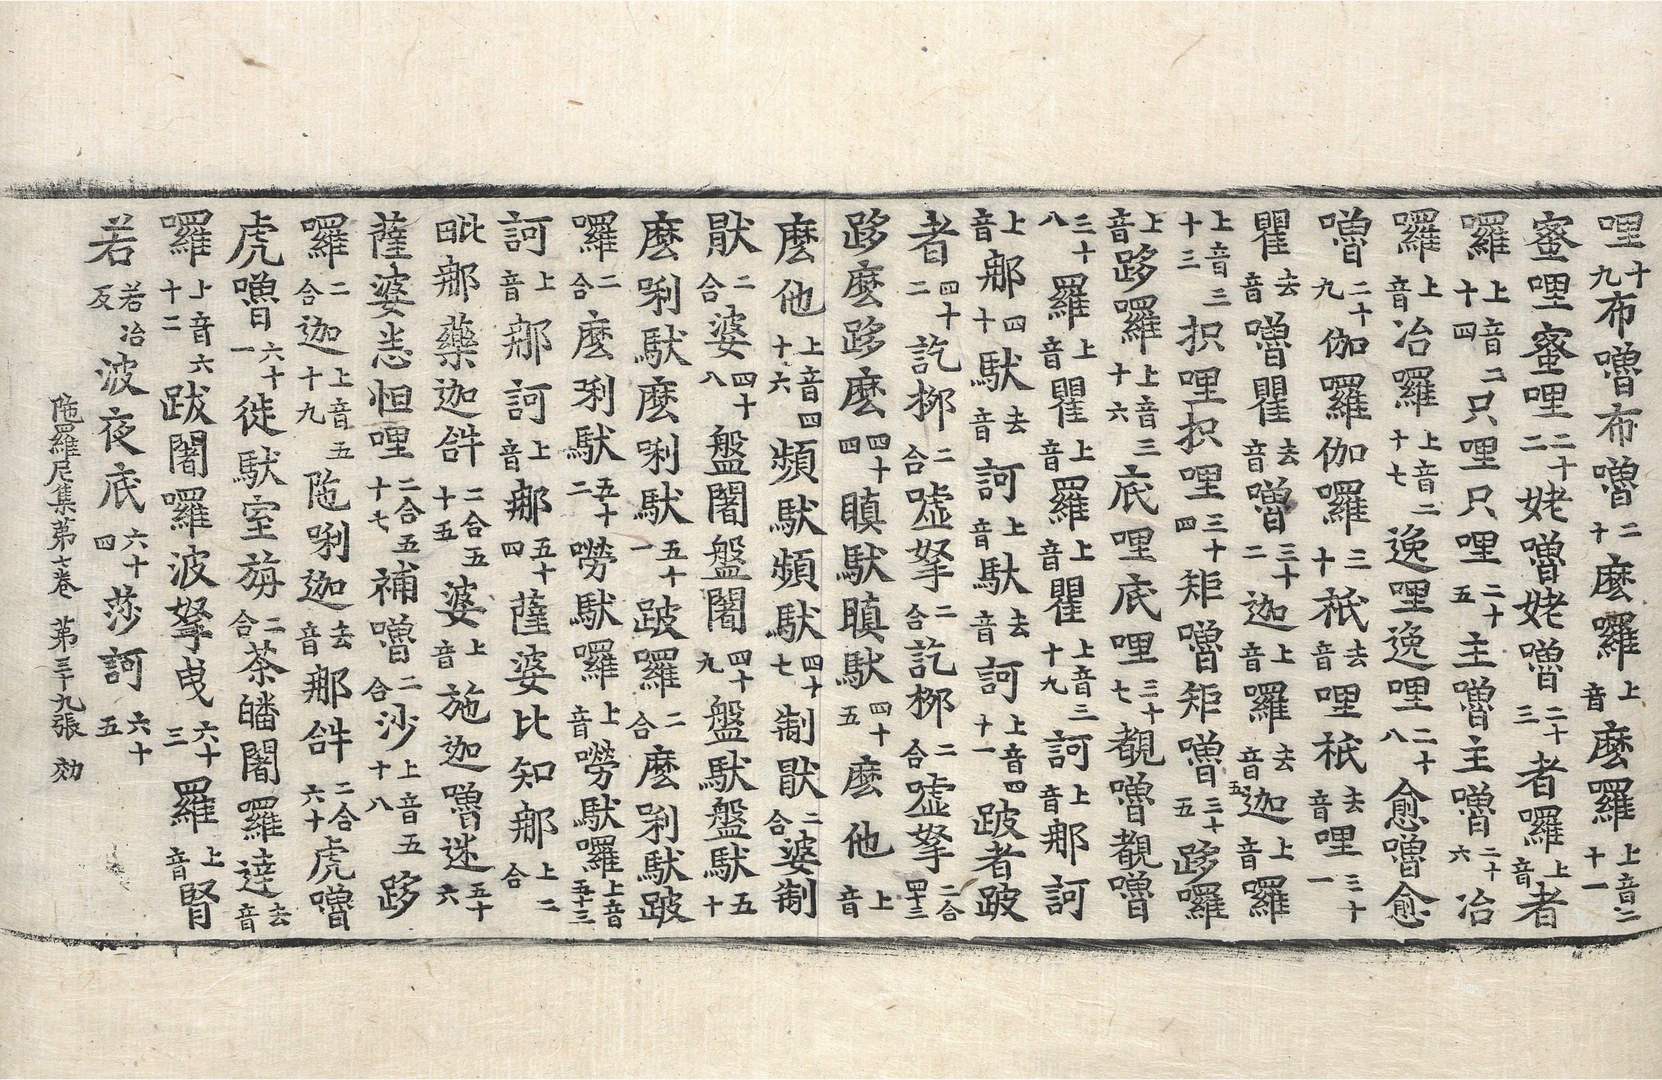 哩十九布嚕布嚕二十麽囉上音麽羅上音二十一
蜜哩蜜哩二十二姥嚕姥嚕二十三者囉上音者
囉上音二十四只哩只哩二十五主嚕主嚕二十六冶
囉上音冶羅上音二十七逸哩逸哩二十八愈嚕愈
嚕二十九伽羅伽囉三十祇去音哩祇去音哩三十一
瞿去音嚕瞿去音嚕三十二迦上音羅去音迦上音囉
上音三十三抧哩抧哩三十四矩嚕矩嚕三十五跢囉
上音跢囉上音三十六底哩底哩三十七覩嚕覩嚕
三十八羅上音瞿上音羅上音瞿上音三十九訶上音那訶
上音那四十馱去音訶上音馱去音訶上音四十一跛者跛
者四十二訖栁二合嘘拏二合訖栁二合嘘拏二合四十三
跢麽跢麽四十四瞋馱瞋馱四十五麽他上音
麽他上音四十六頻馱頻馱四十七制猒二合婆制
猒二合婆四十八盤闍盤闍四十九盤馱盤馱五十
麽唎馱麽唎馱五十一跛羅二合麽唎馱跛
囉二合麽唎馱五十二嘮馱囉上音嘮馱囉上音五十三
訶上音那訶上音那五十四薩婆比知那上二合
毗那藥迦𤙖二合五十五婆上音施迦嚕迷五十六
薩婆恙怛哩二合五十七補嚕二合沙上音五十八跢
囉二合迦上音五十九陁唎迦去音那𤙖二合六十虎嚕
虎嚕六十一徙馱室旃二合荼皤闍羅達去音
囉上音六十二跋闍囉波拏曳六十三羅上音腎
若若冶反波夜底六十四莎訶六十五
陁羅尼集第七卷 第三十九張 効